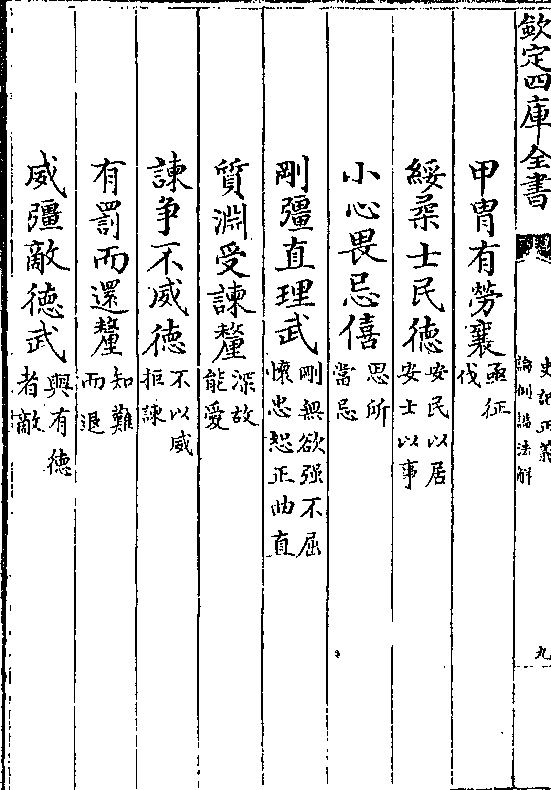 欽定四庫全書
史記正義
論例謚法解
九
甲冑有勞襄亟征伐
綏柔士民德安民以居安士以事
小心畏忌僖思所當忌
剛彊直理武剛無欲强不屈懷忠恕正曲直
質淵受諫釐深故能受
諫爭不威德不以威拒諫
有罰而還釐知難而退
威彊敵德武與有德者敵